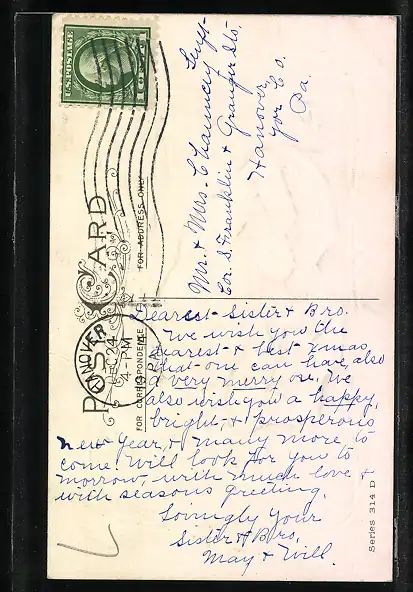 U.S. POSTAGE
POST CARD
HANOVER
DEC 24
4 PM
PA.
FOR CORRESPONDENCE
FOR ADDRESS ONLY
Mr. & Mrs. Chauncey
Cor. S. Franklin & Granger Sts.
Hanover
York Co.
Pa.
Dearest Sister & Bro.
We wish you the
dearest & best Xmas
that one can have, also
a very merry one. We
also wish you a happy,
bright, & prosperous
New Year, & many more to
come. Will look for you to
morrow, with much love &
with seasons greeting.
Lovingly your
Sister & Bro.
May & Will.
Series 314 D